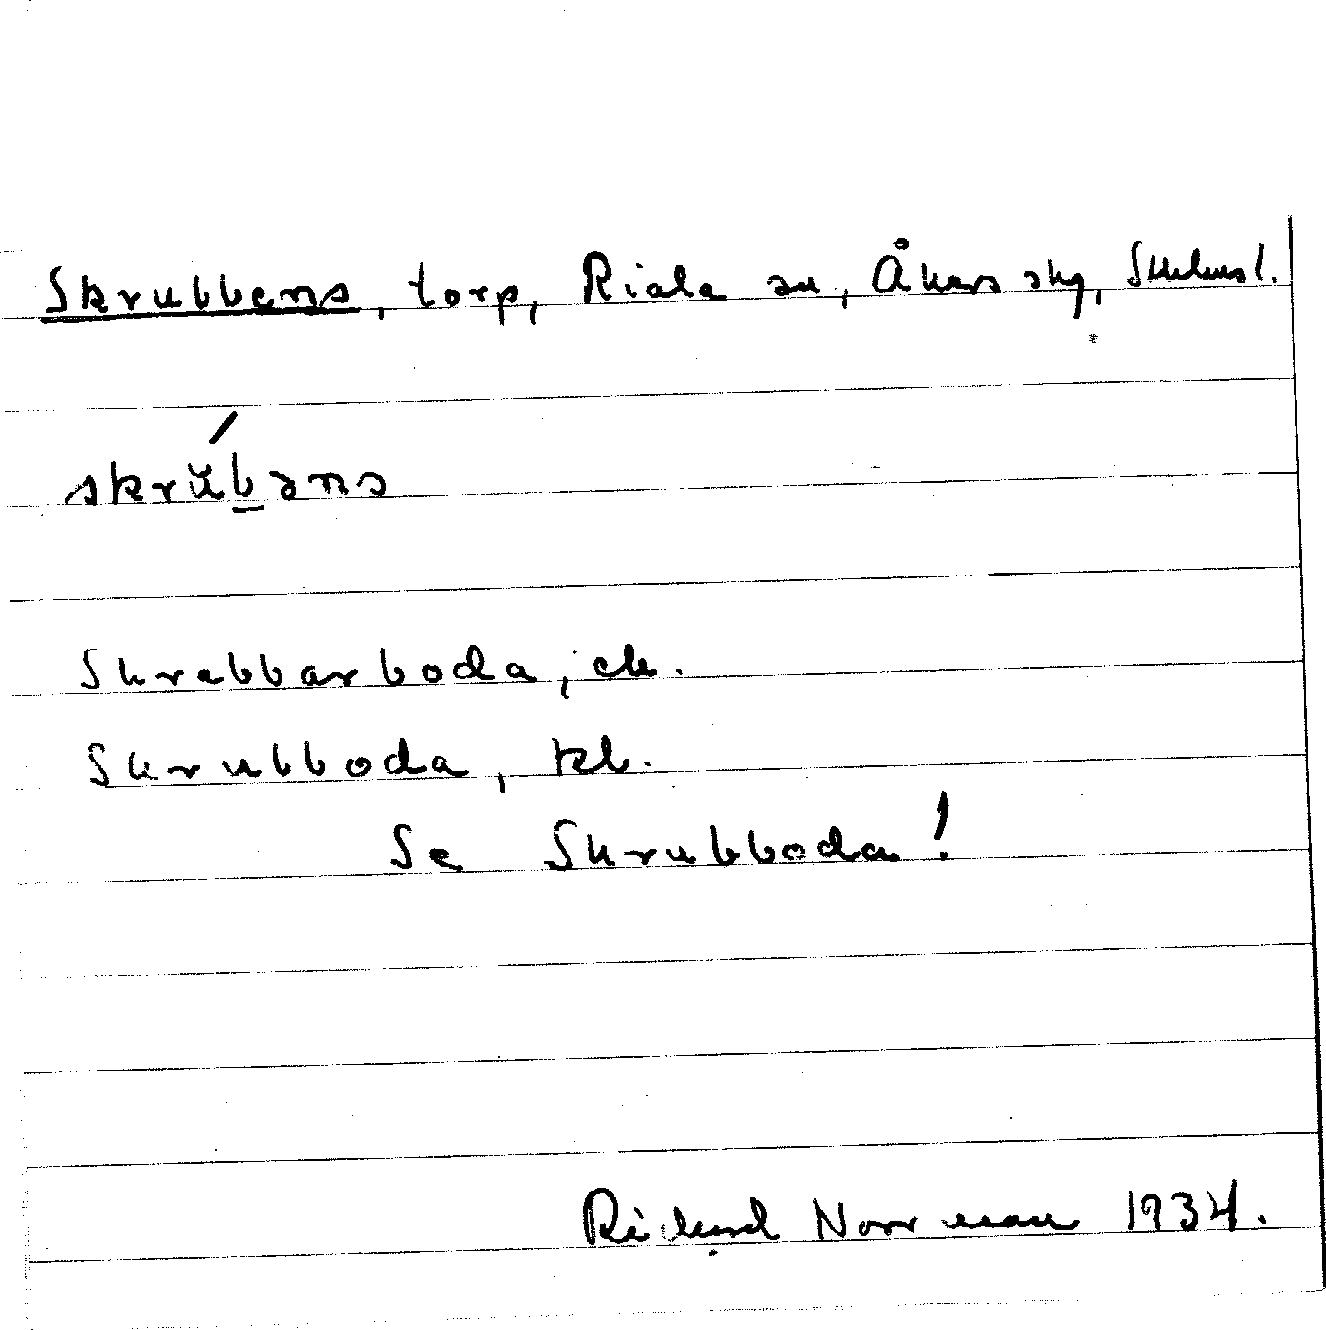 Skrubbens, torp, Riala sn, Åkers skg, Sthlms l.
skrŭb̲əns
Skrabbarboda, ek.
Skrubboda, kb.
Se Skrubboda!
Rickard Norrman 1934.